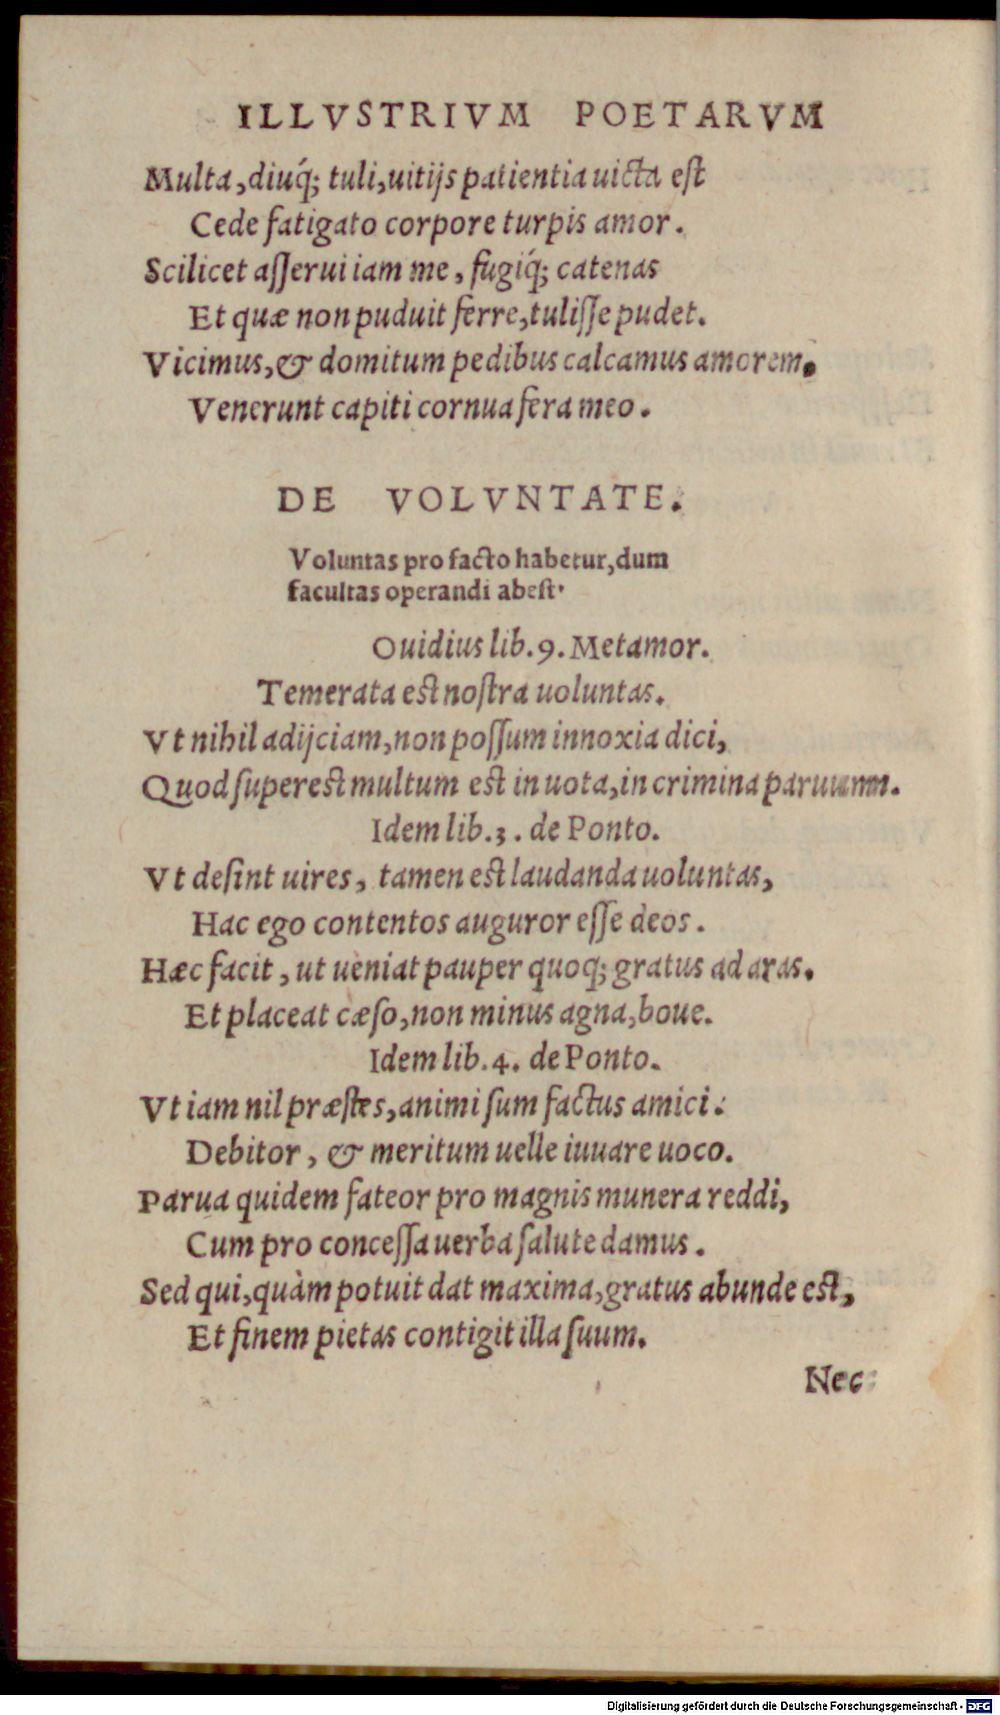 ILLVSTRIVM POETARVM
Multa, diuq́; tuli, uitijs patientia uicta est
Cede fatigato corpore turpis amor.
Scilicet aſſerui iam me, fugiq́; catenas
Et quæ non puduit ferre, tuliſſe pudet.
Vicimus, & domitum pedibus calcamus amorem.
Venerunt capiti cornua fera meo.
DE VOLVNTATE.
Voluntas pro facto habetur, dum
facultas operandi abeſt.
Ouidius lib. 9. Metamor.
Temerata est noſtra uoluntas.
Vt nihil adijciam, non poſſum innoxia dici,
Quod ſuperest multum est in uota, in crimina paruum.
Idem lib. 3. de Ponto.
Vt deſint uires, tamen est laudanda uoluntas,
Hac ego contentos auguror eſſe deos.
Hæc facit, ut ueniat pauper quoq; gratus ad aras.
Et placeat cæſo, non minus agna, boue.
Idem lib. 4. de Ponto.
Vt iam nil præſtes, animi ſum factus amici:
Debitor, & meritum uelle iuuare uoco.
Parua quidem fateor pro magnis munera reddi,
Cum pro conceſſa uerba ſalute damus.
Sed qui, quàm potuit dat maxima, gratus abunde est,
Et finem pietas contigit illa ſuum.
Nec
Digitalisierung gefördert durch die Deutsche Forschungsgemeinschaft - DFG